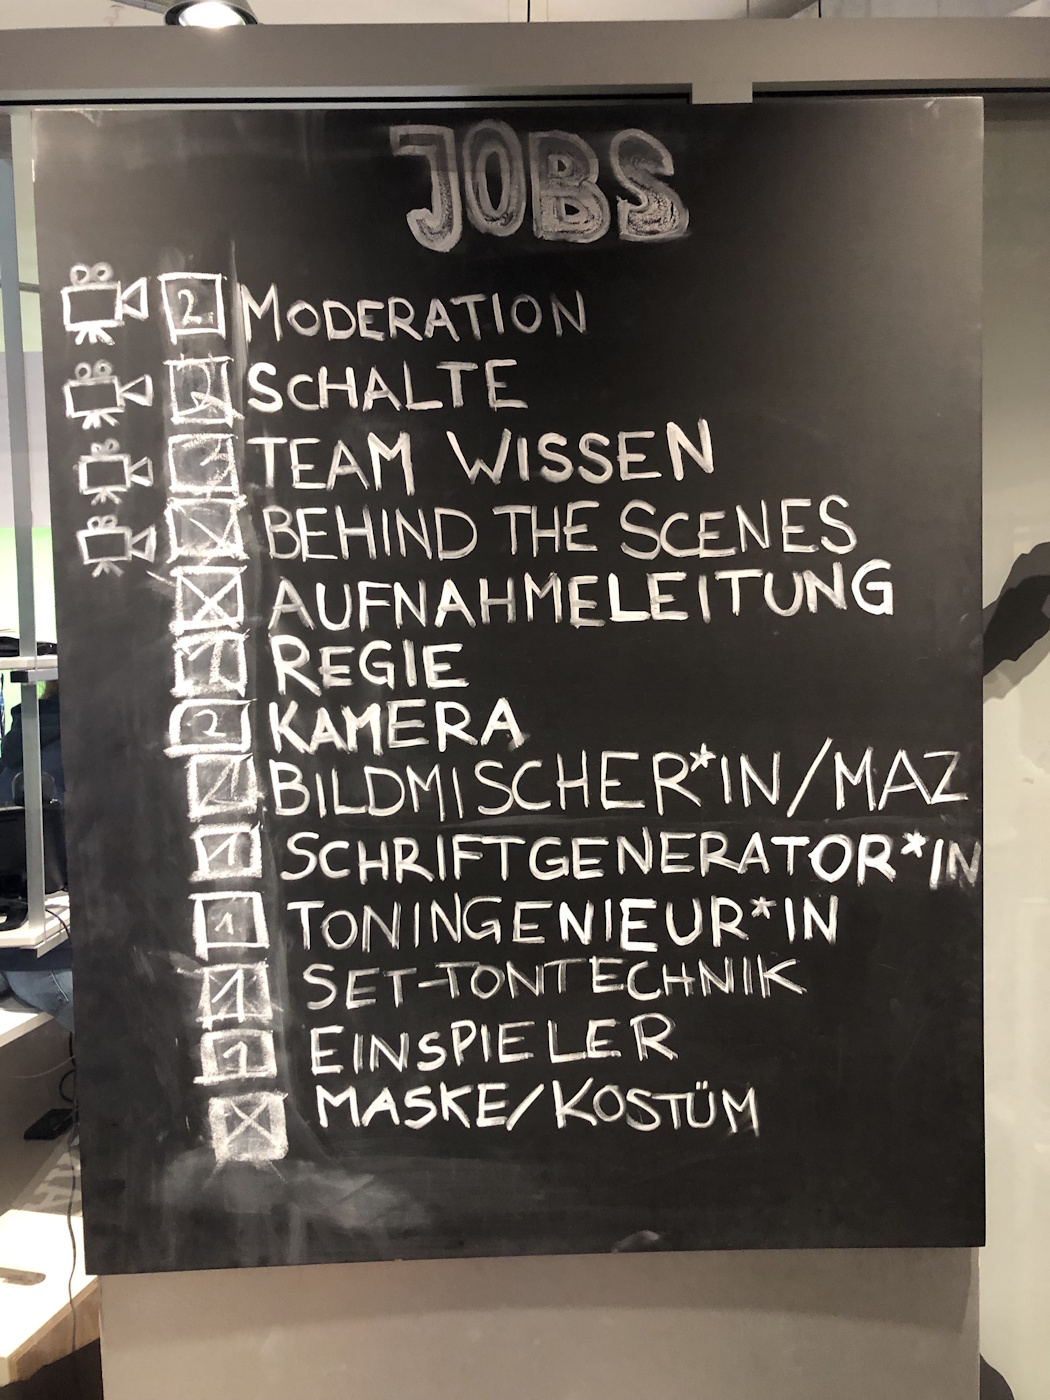 JOBS
2 MODERATION
SCHALTE
TEAM WISSEN
X BEHIND THE SCENES
X AUFNAHMELEITUNG
1 REGIE
2 KAMERA
BILDMISCHER*IN/MAZ
1 SCHRIFTGENERATOR*IN
1 TONINGENIEUR*IN
1 SET-TONTECHNIK
1 EINSPIELER
X MASKE/KOSTÜM